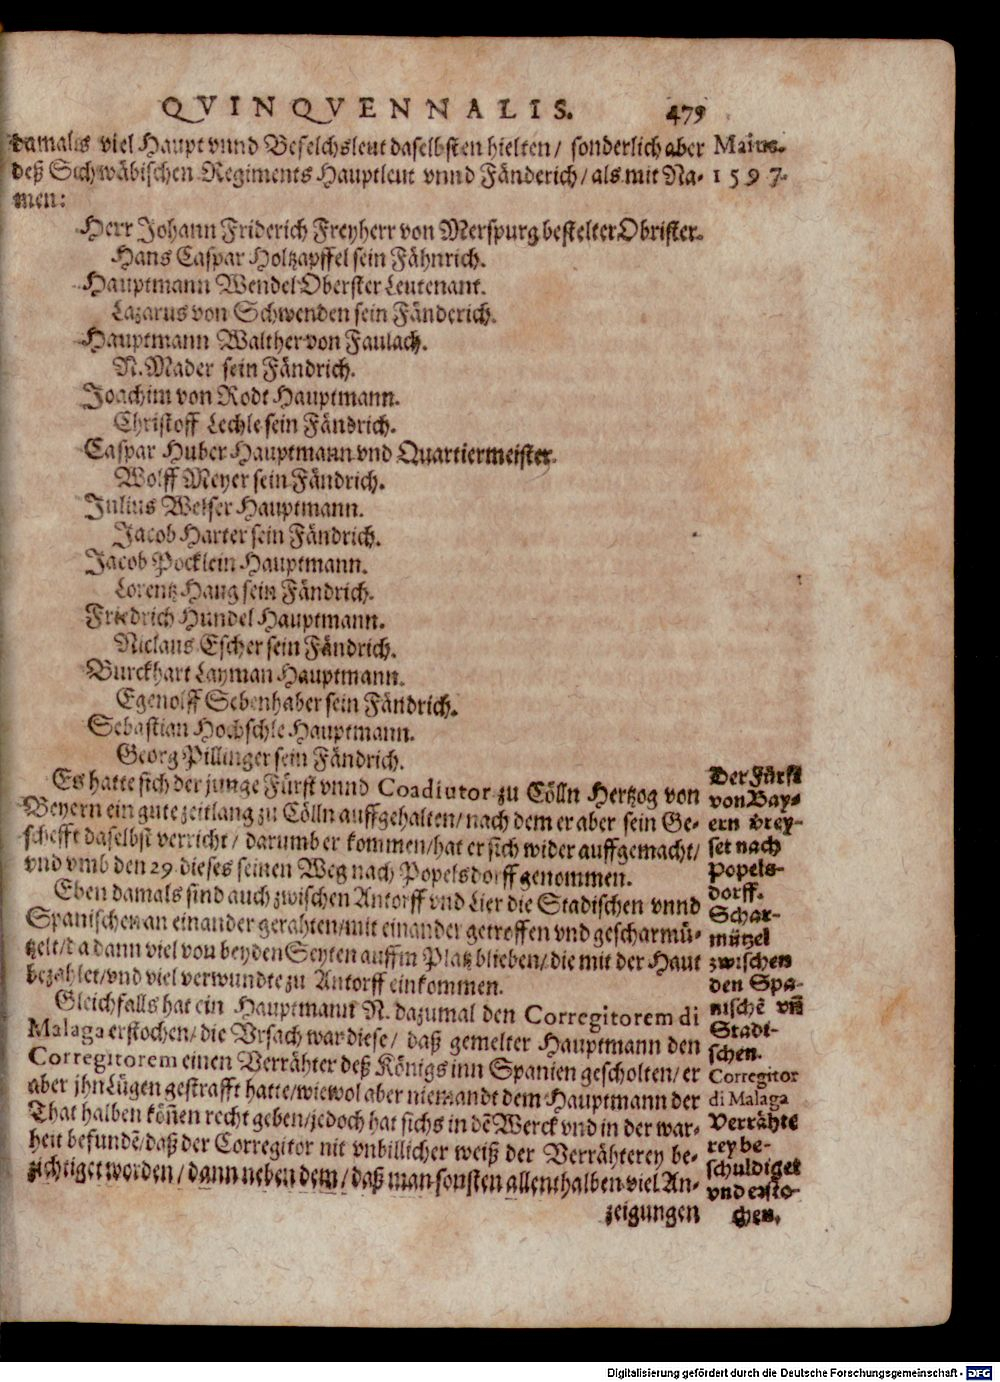 QVINQVENNALIS. 479
damals viel Haupt vnnd Befelchsleut daselbsten hielten / sonderlich aber
deß Schwäbischen Regiments Hauptleut vnnd Fänderich / als mit Na-
men:
Maius.
1597.
Herr Johann Friderich Freyherr von Merspurg bestelter Obrister.
Hans Caspar Holtzapffel sein Fähnrich.
Hauptmann Wendel Oberster Leutenant.
Lazarus von Schwenden sein Fänderich.
Hauptmann Walther von Faulach.
N. Mader sein Fändrich.
Joachim von Rodt Hauptmann.
Christoff Lechle sein Fändrich.
Caspar Huber Hauptmann vnd Quartiermeister.
Wolff Meyer sein Fändrich.
Julius Welser Hauptmann.
Jacob Harter sein Fändrich.
Jacob Pocklein Hauptmann.
Lorentz Haug sein Fändrich.
Friedrich Hundel Hauptmann.
Niclaus Escher sein Fändrich.
Burckhart Layman Hauptmann.
Egenolff Sebenhaber sein Fändrich.
Sebastian Hochschle Hauptmann.
Georg Pillinger sein Fändrich.
Es hatte sich der junge Fürst vnnd Coadiutor zu Cölln Hertzog von
Beyern ein gute zeitlang zu Cölln auffgehalten / nach dem er aber sein Ge-
schefft daselbst verricht / darumb er kommen / hat er sich wider auffgemacht /
vnd vmb den 29. dieses seinen Weg nach Popelsdorff genommen.
Eben damals sind auch zwischen Antorff vnd Lier die Stadischen vnnd
Spanischen an einander gerahten / mit einander getroffen vnd gescharmü-
tzelt / da dann viel von beyden Seyten auffm Platz blieben / die mit der Haut
bezahlet / vnd viel verwundte zu Antorff einkommen.
Gleichfalls hat ein Hauptmann N. dazumal den Corregitorem di
Malaga erstochen / die Vrsach war diese / daß gemelter Hauptmann den
Corregitorem einen Verrähter deß Königs inn Spanien gescholten / er
aber jhn Lügen gestrafft hatte / wiewol aber niemandt dem Hauptmann der
That halben kön̄en recht geben / jedoch hat sichs in dē Werck vnd in der war-
heit befundē / daß der Corregitor nit vnbillicher weiß der Verrähterey be-
zichtiget worden / dann neben dem / daß man sonsten allenthalben viel An-
zeigungen
Der Fürst
von Bay-
ern vrey-
set nach
Popels-
dorff.
Schar-
mützel
zwischen
den Spa-
nischē vn̄
Stadi-
schen.
Corregitor
di Malaga
Verrähte
rey be-
schuldiget
vnd ersto-
chen.
Digitalisierung gefördert durch die Deutsche Forschungsgemeinschaft - DFG